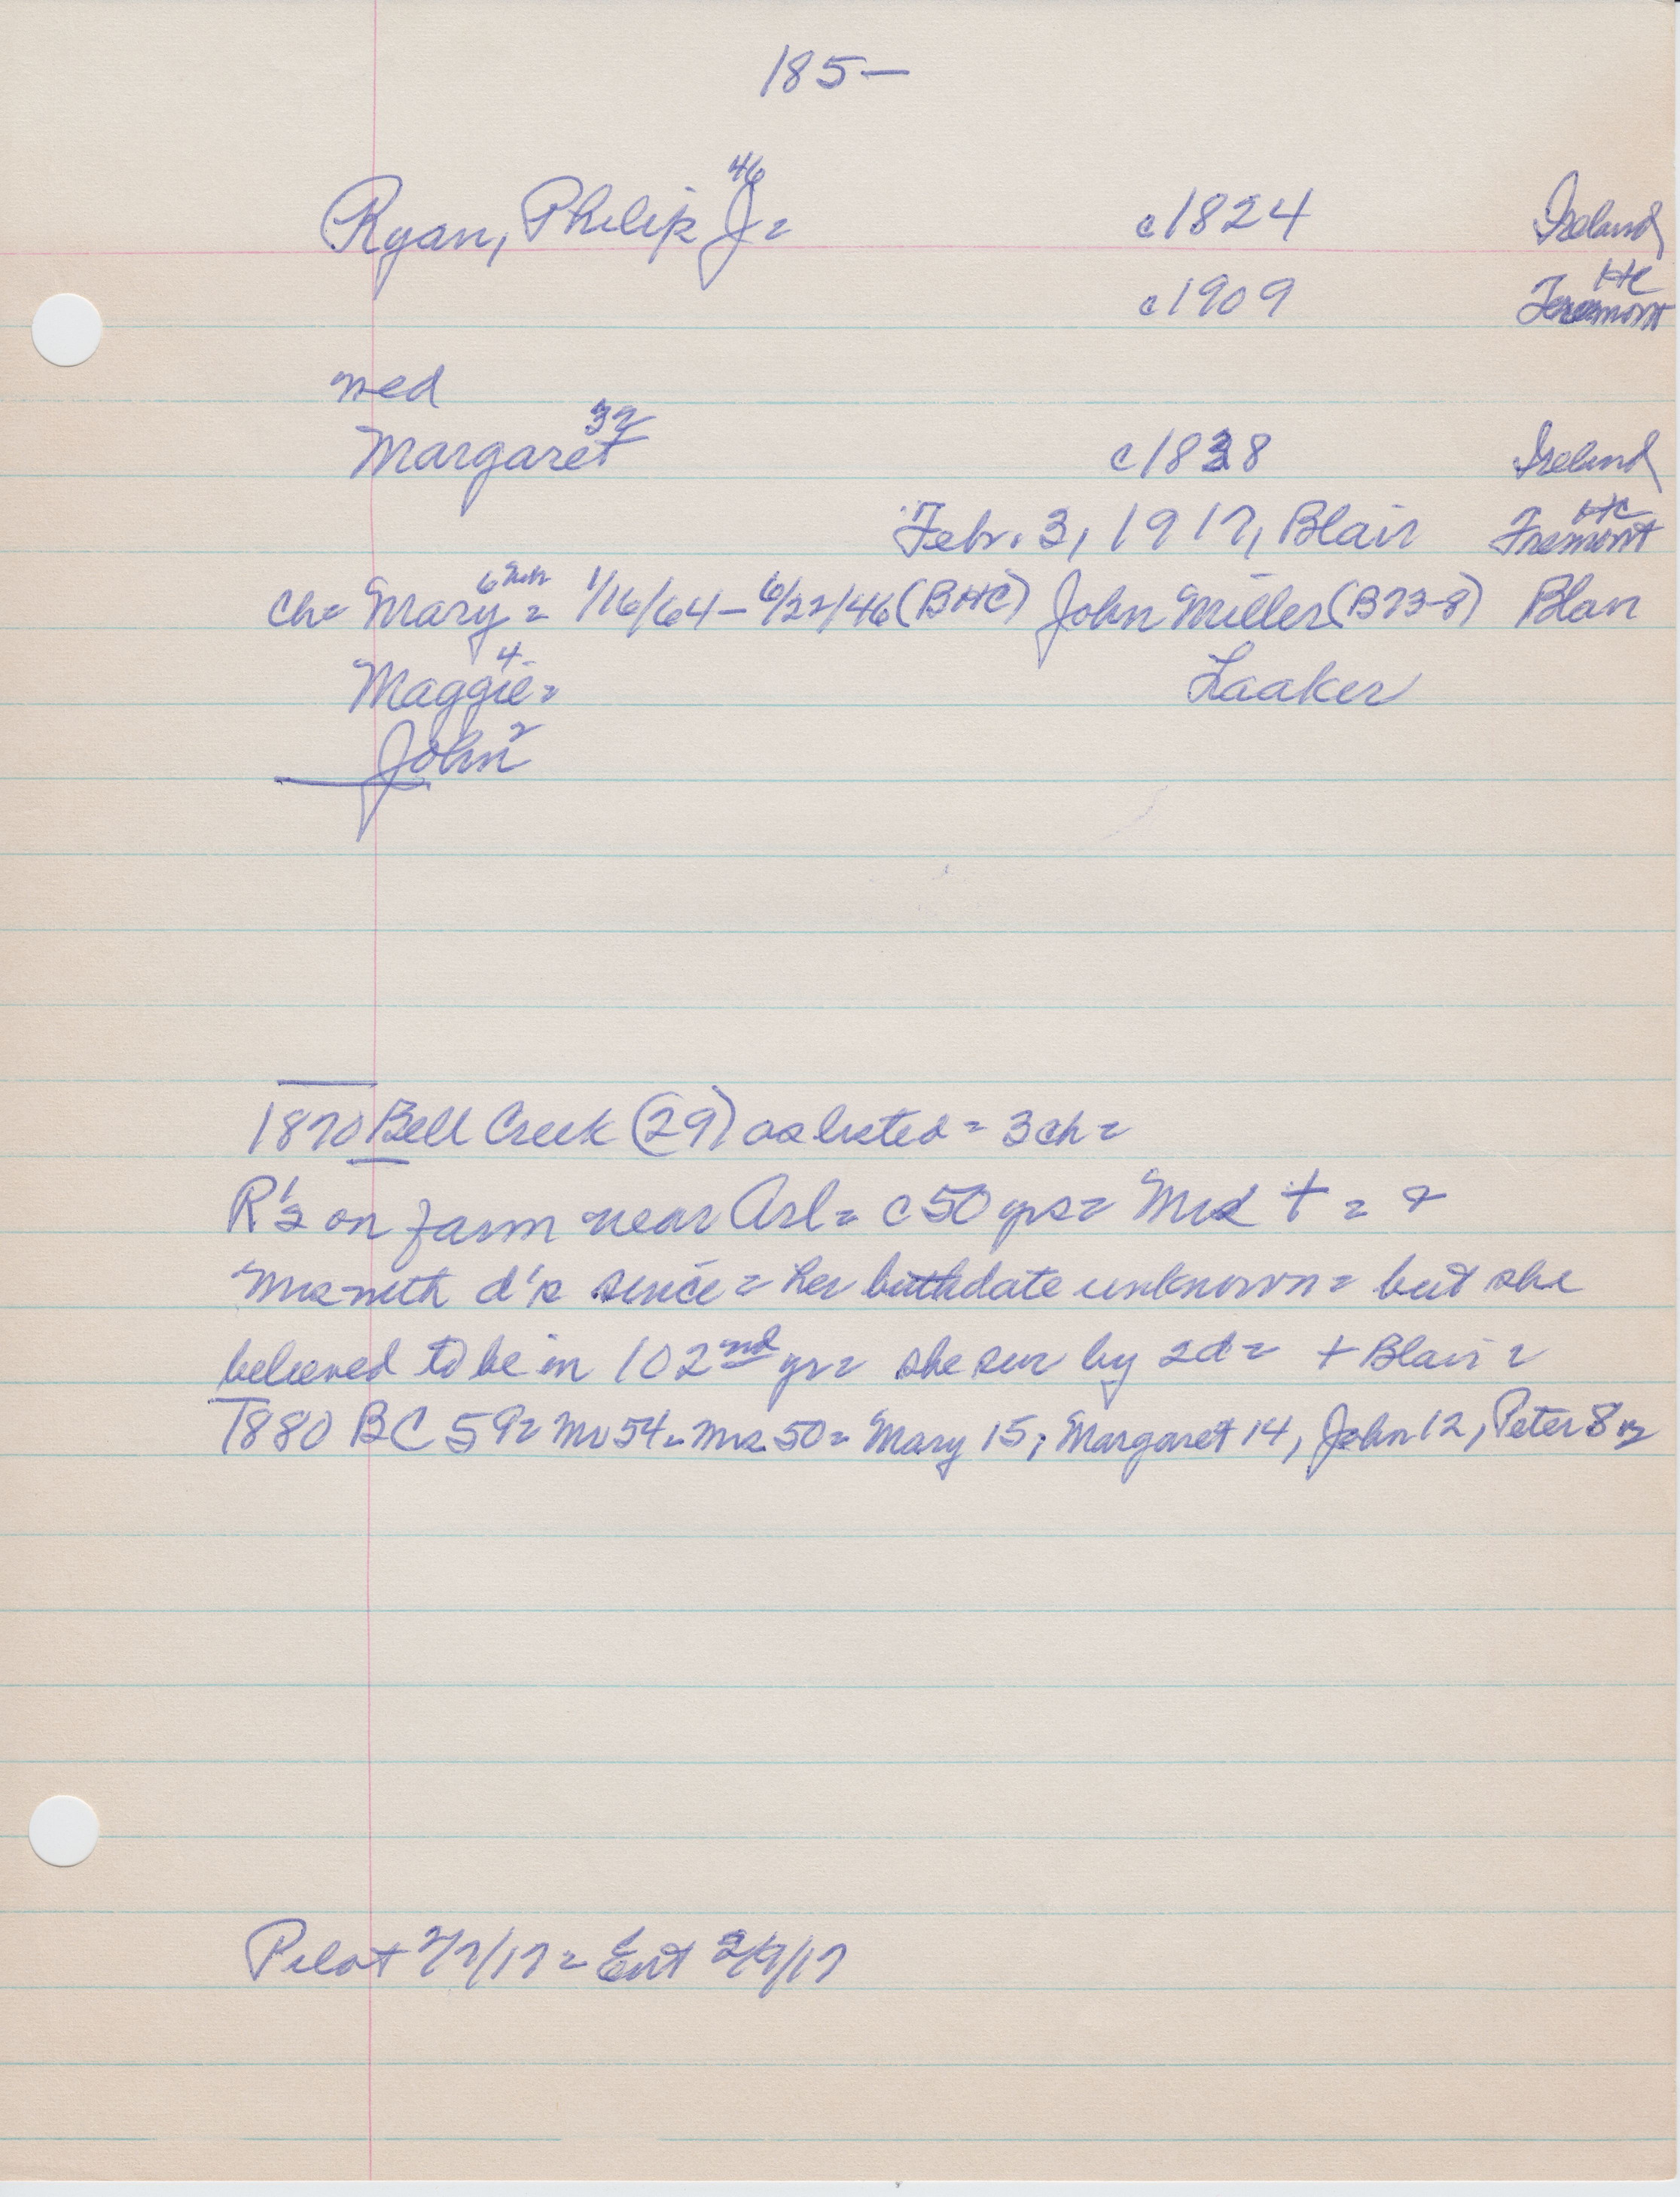 185—
46
Ryan, Philip J= c1824 Ireland
c1909 HC Fremont
med
32
Margaret c1838 Ireland
Febr. 3, 1917, Blair HC Fremont
ch= Mary 6 = 1/16/64 — 6/22/46 (BHC) John Miller (B73-8) Blair
Maggie 4 = Laaker
John 2
1870 Bell Creek (29) as listed = 3 ch =
R's on farm near Arl = c 50 yrs = Mr + = &
Mrs with d's since = her birthdate unknown = but she
believed to be in 102nd yr = she sur by 2d = + Blair =
1880 BC 59= Mr 54= Mrs 50= Mary 15; Margaret 14, John 12, Peter 8
Pilot 2/7/17 = Ent 2/9/17